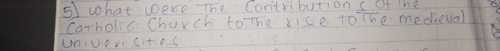 5) What were the contributions of the
Catholic Church to the rise to the medieval
univericities